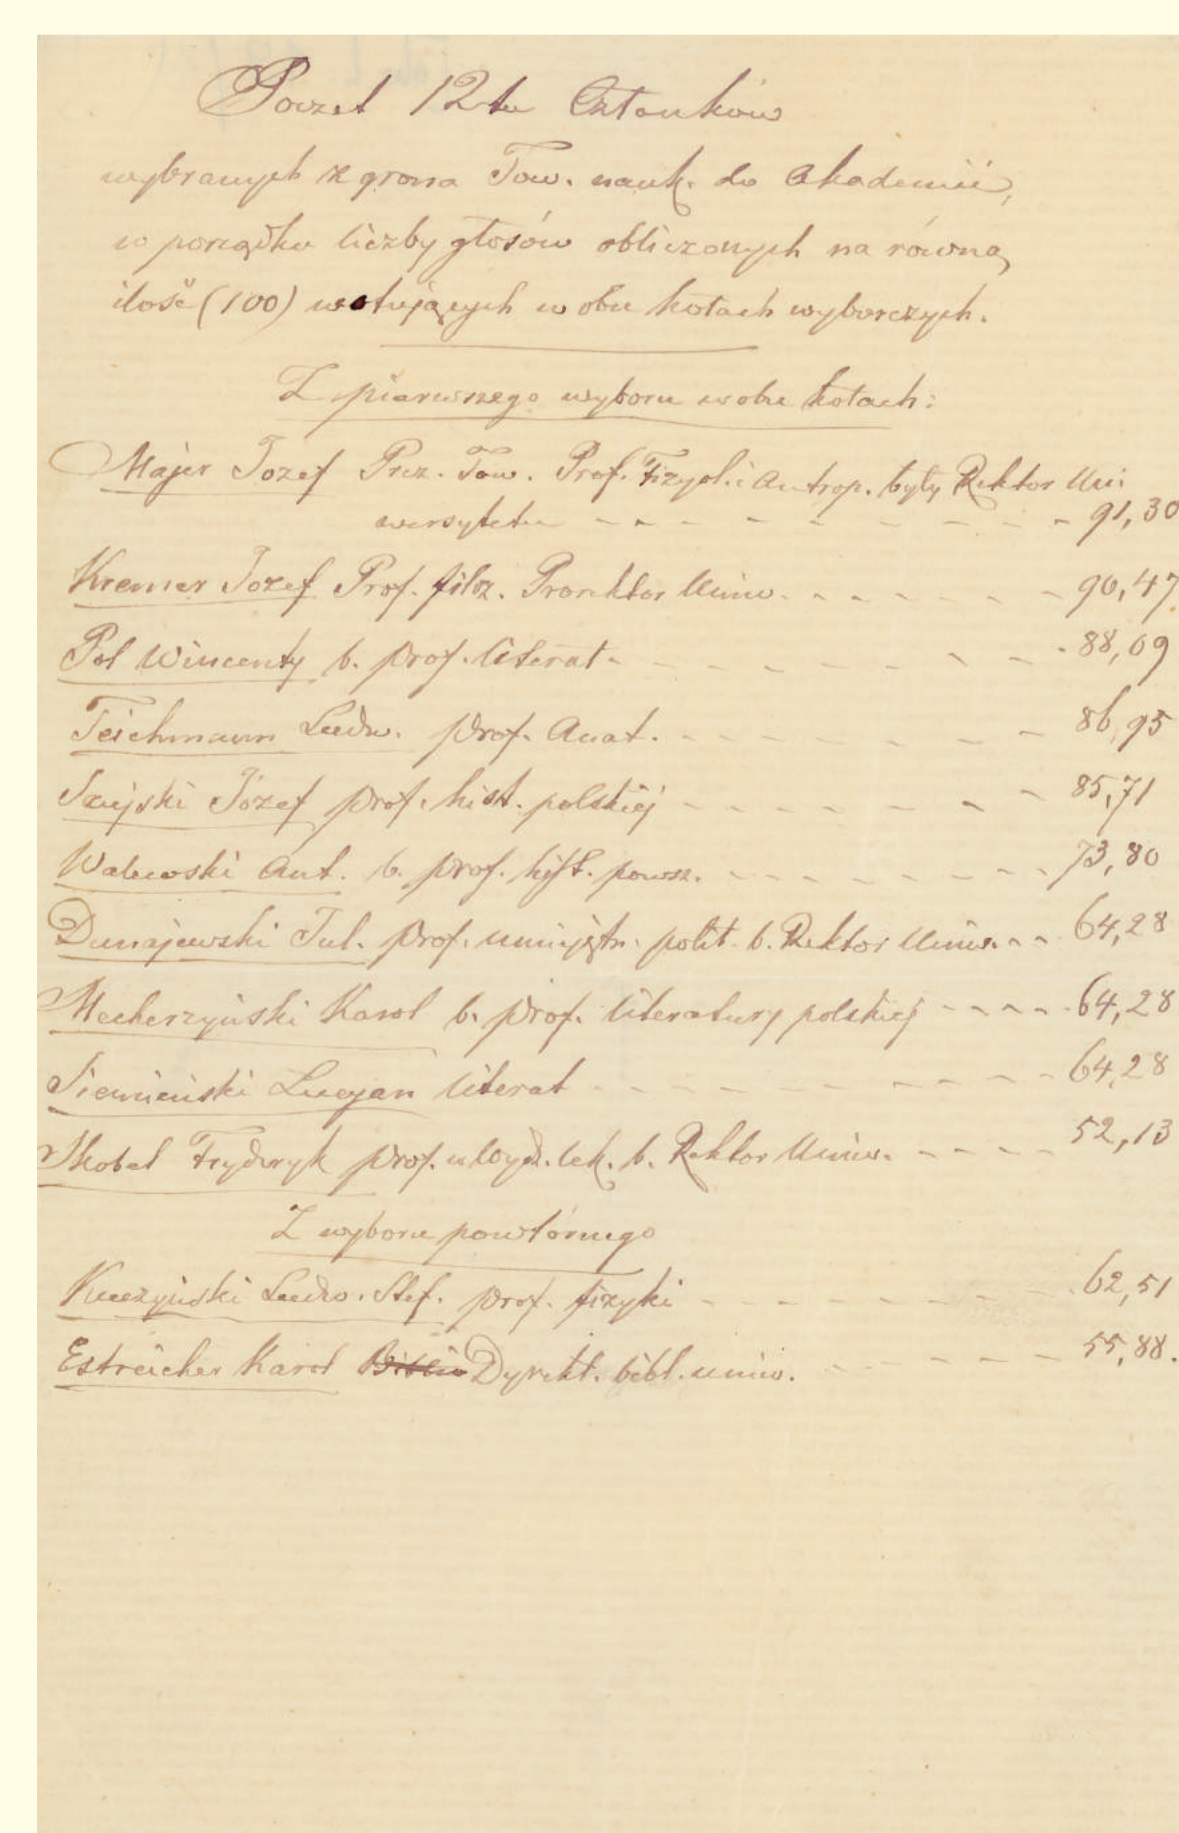 Poczet 12tu Członków
wybranych z grona Tow. nauk. do Akademii,
w porządku liczby głosów obliczonych na równą
ilość (100) wotujących w obu kołach wyborczych.
Z pierwszego wyboru w obu kołach:
Majer Józef Prez. Tow. Prof. Fizyol. i Antrop. były Rektor Uni
wersytetu - - - - - - - - - - 91,30
Kremer Józef Prof. filoz. Prorektor Uniw. - - - - - - - 90,47
Pol Wincenty b. prof. literat. - - - - - - - - 88,09
Teichmann Ludw. prof. Anat. - - - - - - - - 86,95
Szujski Józef prof. hist. polskiej - - - - - - - - 85,71
Walewski Ant. b. prof. hist. powsz. - - - - - - - - 73,80
Dunajewski Jul. prof. umiejętn. polit. b. Rektor Uniw. - - 64,28
Mecherzyński Karol b. prof. literatury polskiej - - - - - 64,28
Siemieński Lucyan literat - - - - - - - - - 64,28
Skobel Fryderyk prof. wydz. lek. b. Rektor Uniw. - - - - 52,13
Z wyboru powtórnego
Kuczyński Ludw. Stef. prof. fizyki - - - - - - - - 62,51
Estreicher Karol Dyrekt. bibl. uniw. - - - - - - 55,88.